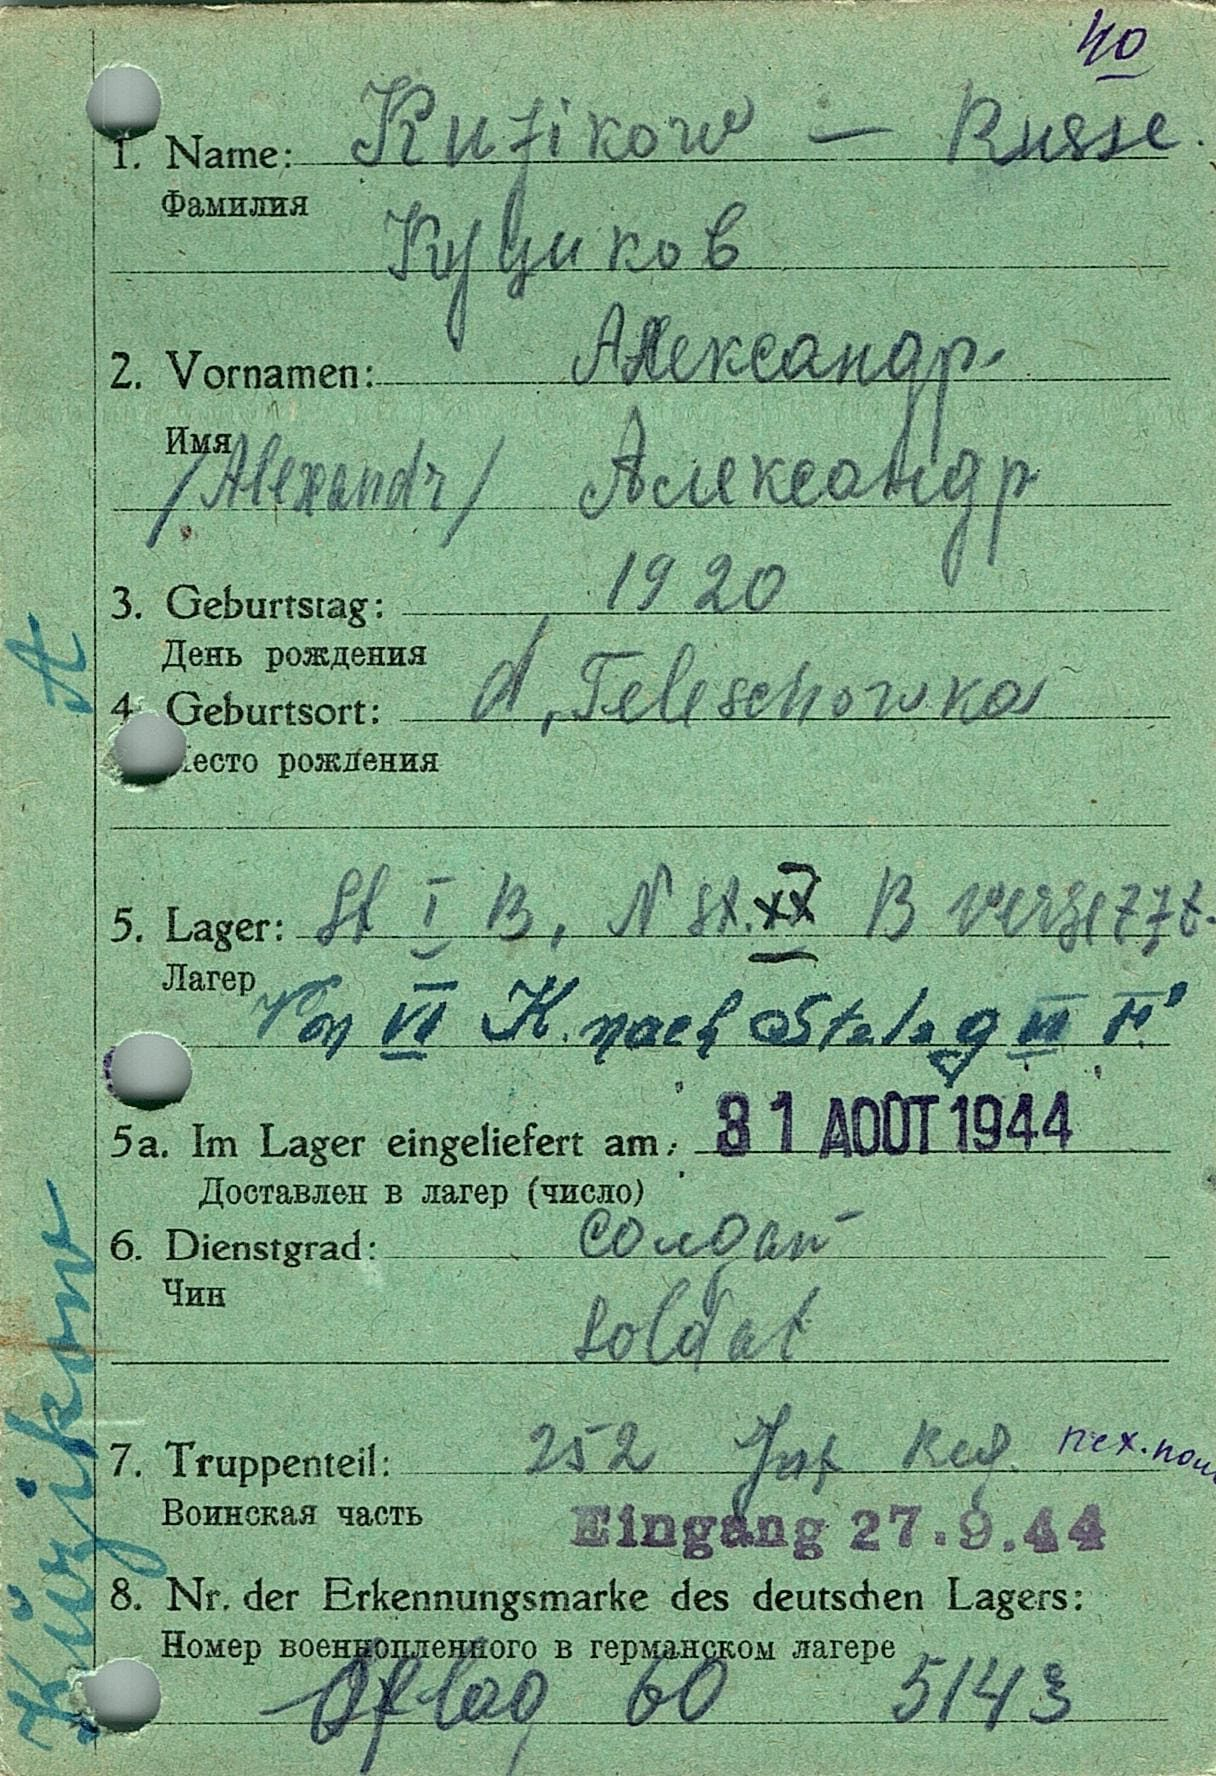 40
1. Name: Kuzikow — Russe.
Фамилия
Куциков
2. Vornamen: Александр.
Имя
/Alexandr/ Александр
3. Geburtstag: 1920
День рождения
4. Geburtsort: d, Teleschowka
Место рождения
5. Lager: St I B, N St. XX B versetzt.
Лагер
Von VI K. nach Stalag VI
5a. Im Lager eingeliefert am: 31 AOÛT 1944
Доставлен в лагер (число)
6. Dienstgrad: солдат
Чин
Soldat
7. Truppenteil: 252 Inf Reg. пех.
Воинская часть
Eingang 27.9.44
8. Nr. der Erkennungsmarke des deutschen Lagers:
Номер военнопленного в германском лагере
Oflag 60 5143
A
Küzikow